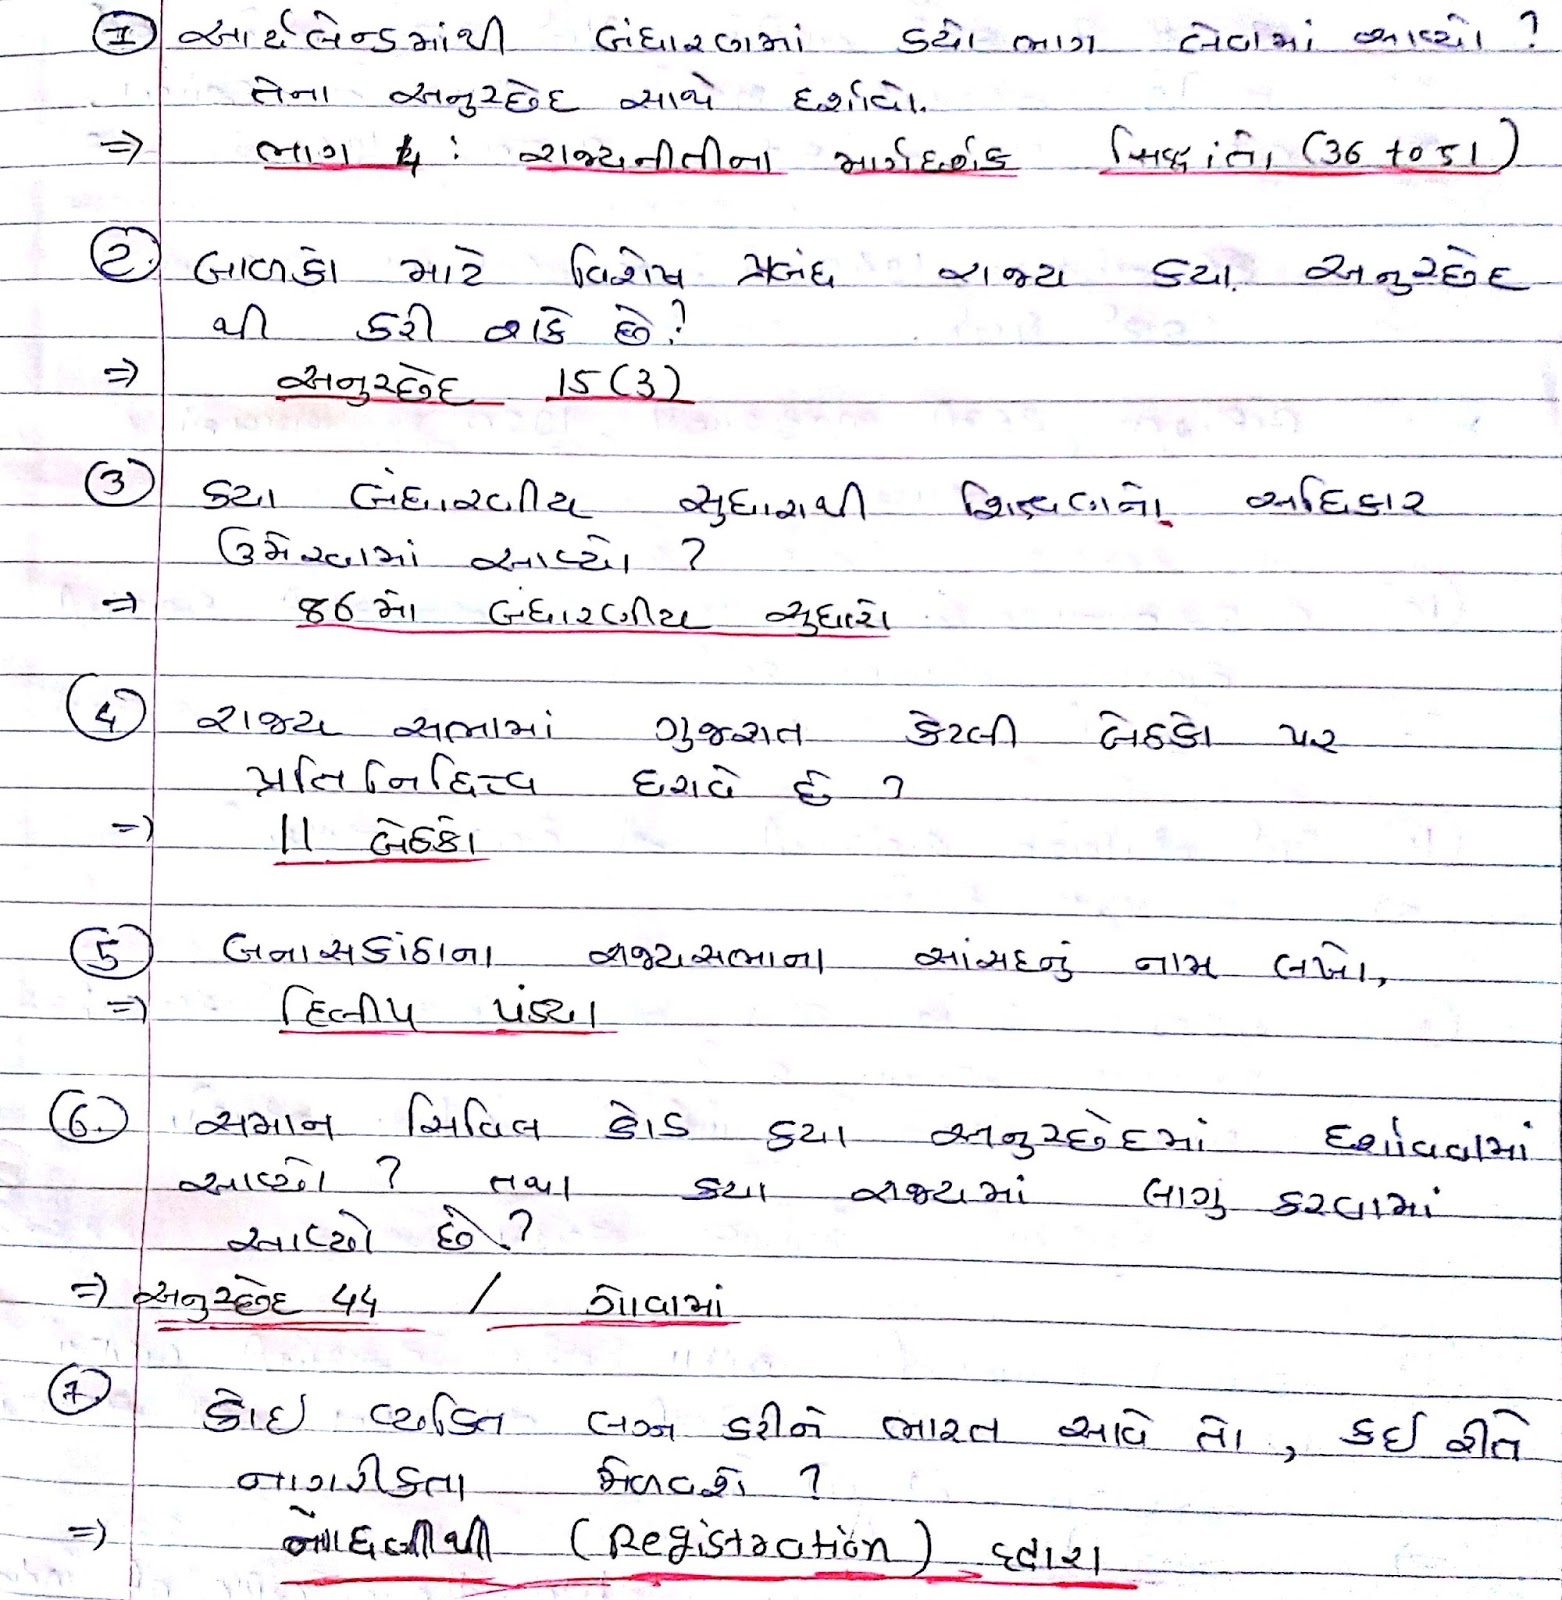 ① આર્યલેન્ડમાંથી બંધારણમાં કયો ભાગ લેવામાં આવ્યો ?
તેના અનુચ્છેદ સાથે દર્શાવો.
⇒ ભાગ 4 : રાજ્યનીતીના માર્ગદર્શક સિદ્ધાંતો (36 to 51)
②. બાળકો માટે વિશેષ પ્રબંધ રાજ્ય કયા અનુચ્છેદ
થી કરી શકે છે?
⇒ અનુચ્છેદ 15(3)
③ કયા બંધારણીય સુધારાથી શિક્ષણનો અધિકાર
ઉમેરવામાં આવ્યો ?
⇒ 86મો બંધારણીય સુધારો
④ રાજ્ય સભામાં ગુજરાત કેટલી બેઠકો પર
પ્રતિનિધિત્વ ધરાવે છે ?
⇒ 11 બેઠકો
⑤ બનાસકાંઠાના રાજ્યસભાના સાંસદનું નામ લખો,
⇒ દિલીપ પંડ્યા
⑥. સમાન સિવિલ કોડ કયા અનુચ્છેદમાં દર્શાવવામાં
આવ્યો ? તથા કયા રાજ્યમાં લાગુ કરવામાં
આવ્યો છે.?
⇒ અનુચ્છેદ 44 / ગોવામાં
⑦. કોઈ વ્યક્તિ લગ્ન કરીને ભારત આવે તો, કઈ રીતે
નાગરીકતા મેળવશે ?
⇒ નોંધણીથી (Registration) દ્વારા